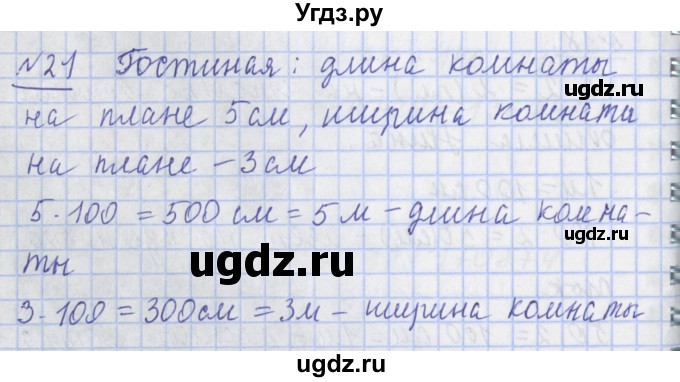 Угдз.ру
№21 Гостиная: длина комнаты
на плане 5 см, ширина комната
на плане – 3 см
5·100 = 500 см = 5 м – длина комна-
ты
3·100 = 300 см = 3 м – ширина комнаты
ugdz.ru
ugdz.ru
ugdz.ru
ugdz.ru
ugdz.ru
ugdz.ru